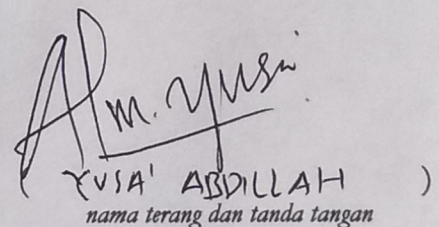 Alm. Yusa
( YUSA' ABDILLAH )
nama terang dan tanda tangan